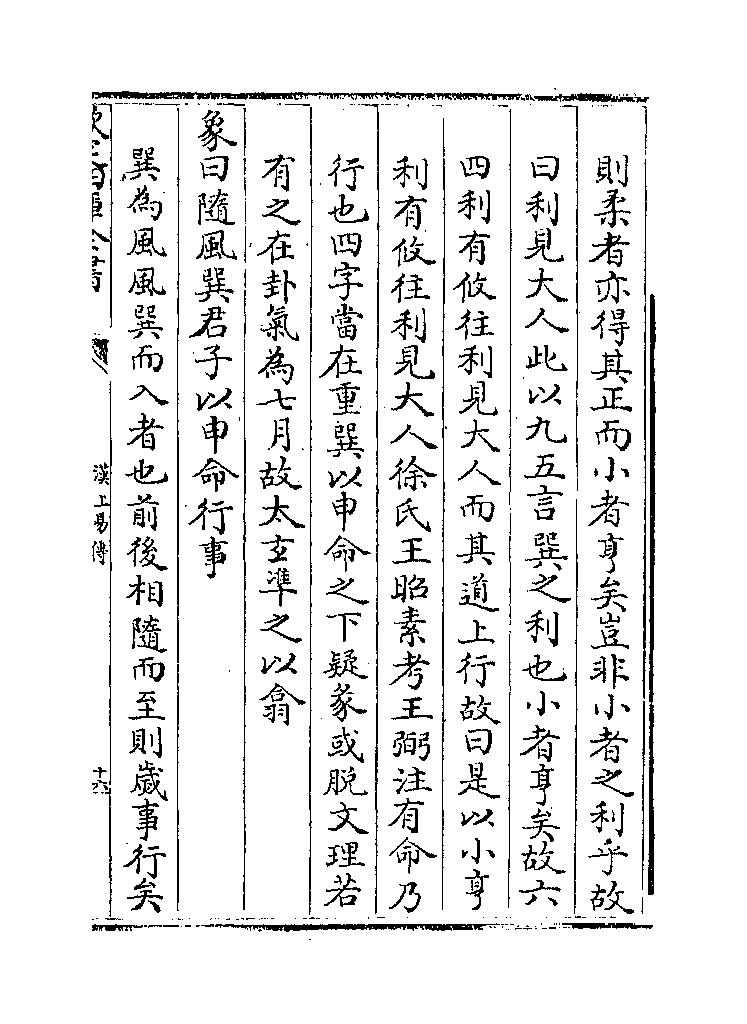 則柔者亦得其正而小者亨矣豈非小者之利乎故
曰利見大人此以九五言巽之利也小者亨矣故六
四利有攸往利見大人而其道上行故曰是以小亨
利有攸往利見大人徐氏王昭素考王弼注有命乃
行也四字當在重巽以申命之下疑彖或脱文理若
有之在卦氣為七月故太玄準之以翕
象曰隨風巽君子以申命行事
巽為風風巽而入者也前後相隨而至則歲事行矣
欽定四庫全書
漢上易傳
十六